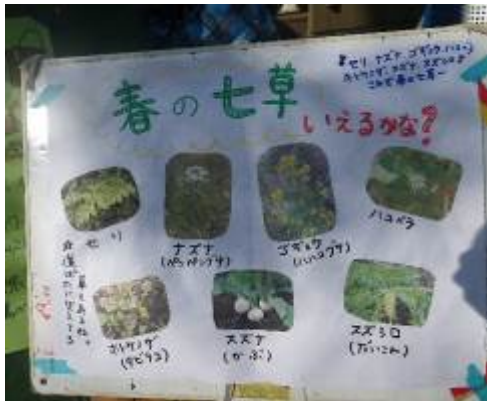 ♪セリ ナズナ ゴギョウ ハコベラ
ホトケノザ スズナ スズシロ♪
これで春の七草〜
春の七草
いえるかな?
せり
ナズナ
(ペンペングサ)
ゴギョウ
(ハハコグサ)
ハコベラ
ホトケノザ
(タビラコ)
スズナ
(かぶ)
スズシロ
(だいこん)